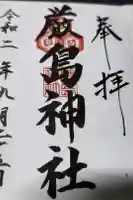 奉拝
厳島神社
令和二年九月二十五日